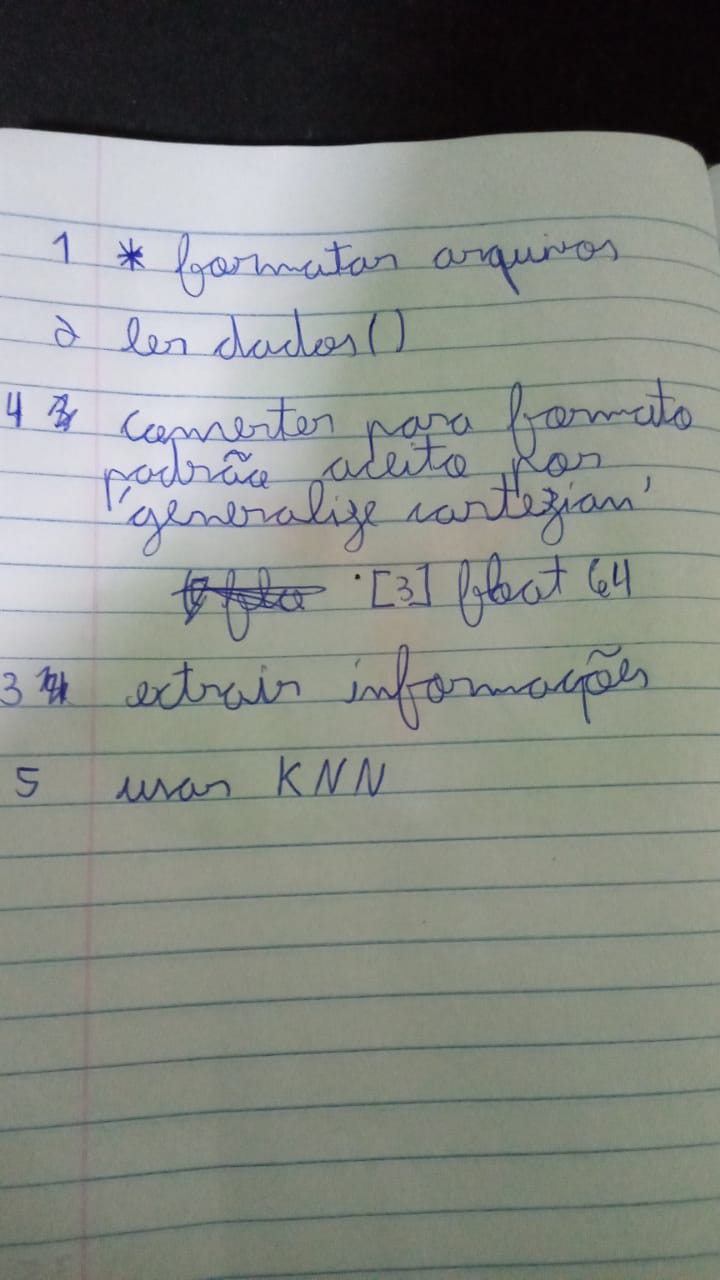 1 * formatar arquivos
2 ler dados()
4 converter para formato
padrão aceito por
"generalize cartezian"
[3] float 64
3 extrair informações
5 usar KNN